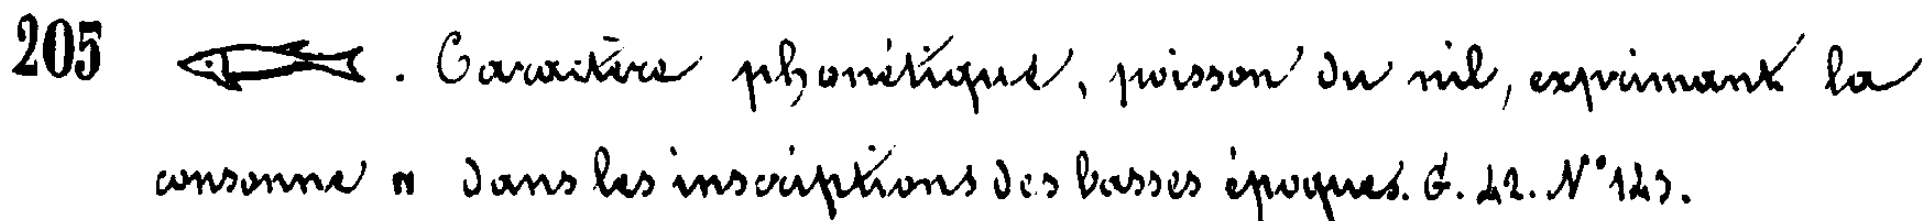 205 . Caractère phonétique, poisson du nil, exprimant la
consonne n dans les inscriptions des basses époques. G. 42. N° 143.